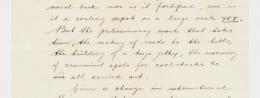 naval base nor is it fortified, nor is
it a coaling depot on a large scale YET.
But the preliminary work that takes
time, the making of roads to the hills,
the building of a large jetty, the
of convenient spots for coal-stacks to
are all carried out.
Given a change in international